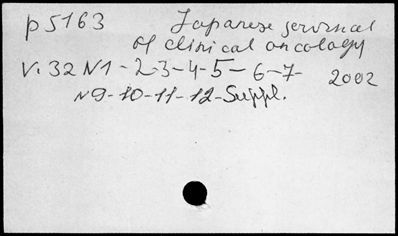 p5163 Japanese journal
of clinical oncology
V.32 N1-2-3-4-5-6-7- 2002
N9-10-11-12-Suppl.